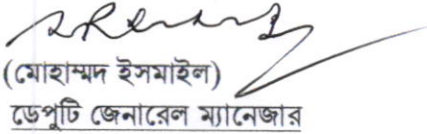 (মোহাম্মদ ইসমাইল)
ডেপুটি জেনারেল ম্যানেজার